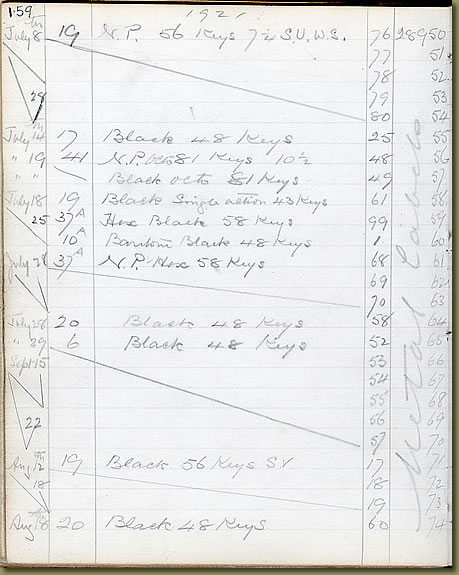 159 1921
July 8th 19 N.P. 56 Keys 7½ S.U.W.S. 76 28950
77 51
78 52
79 53
28 80 54
July 14th 17 Black 48 Keys 25 55
" 19 41 N.P. Octo 81 Keys 10½ 48 56
" " Black octo 81 Keys 49 57
July 18 19 Black Single action 43 Keys 61 58
25 37A Hex Black 58 Keys 99 59
10A Bantom Black 48 Keys 1 60
July 28 37A N.P. Hex 58 Keys 68 61
69 62
70 63
July 28 20 Black 48 Keys 58 64
" 29 6 Black 48 Keys 52 65
Sept 15 53 66
54 67
55 68
22 56 69
57 70
Aug 12th 19 Black 56 Keys S.V 17 71
18 18 72
19 73
Aug 18 20 Black 48 Keys 60 74
Metal Labels